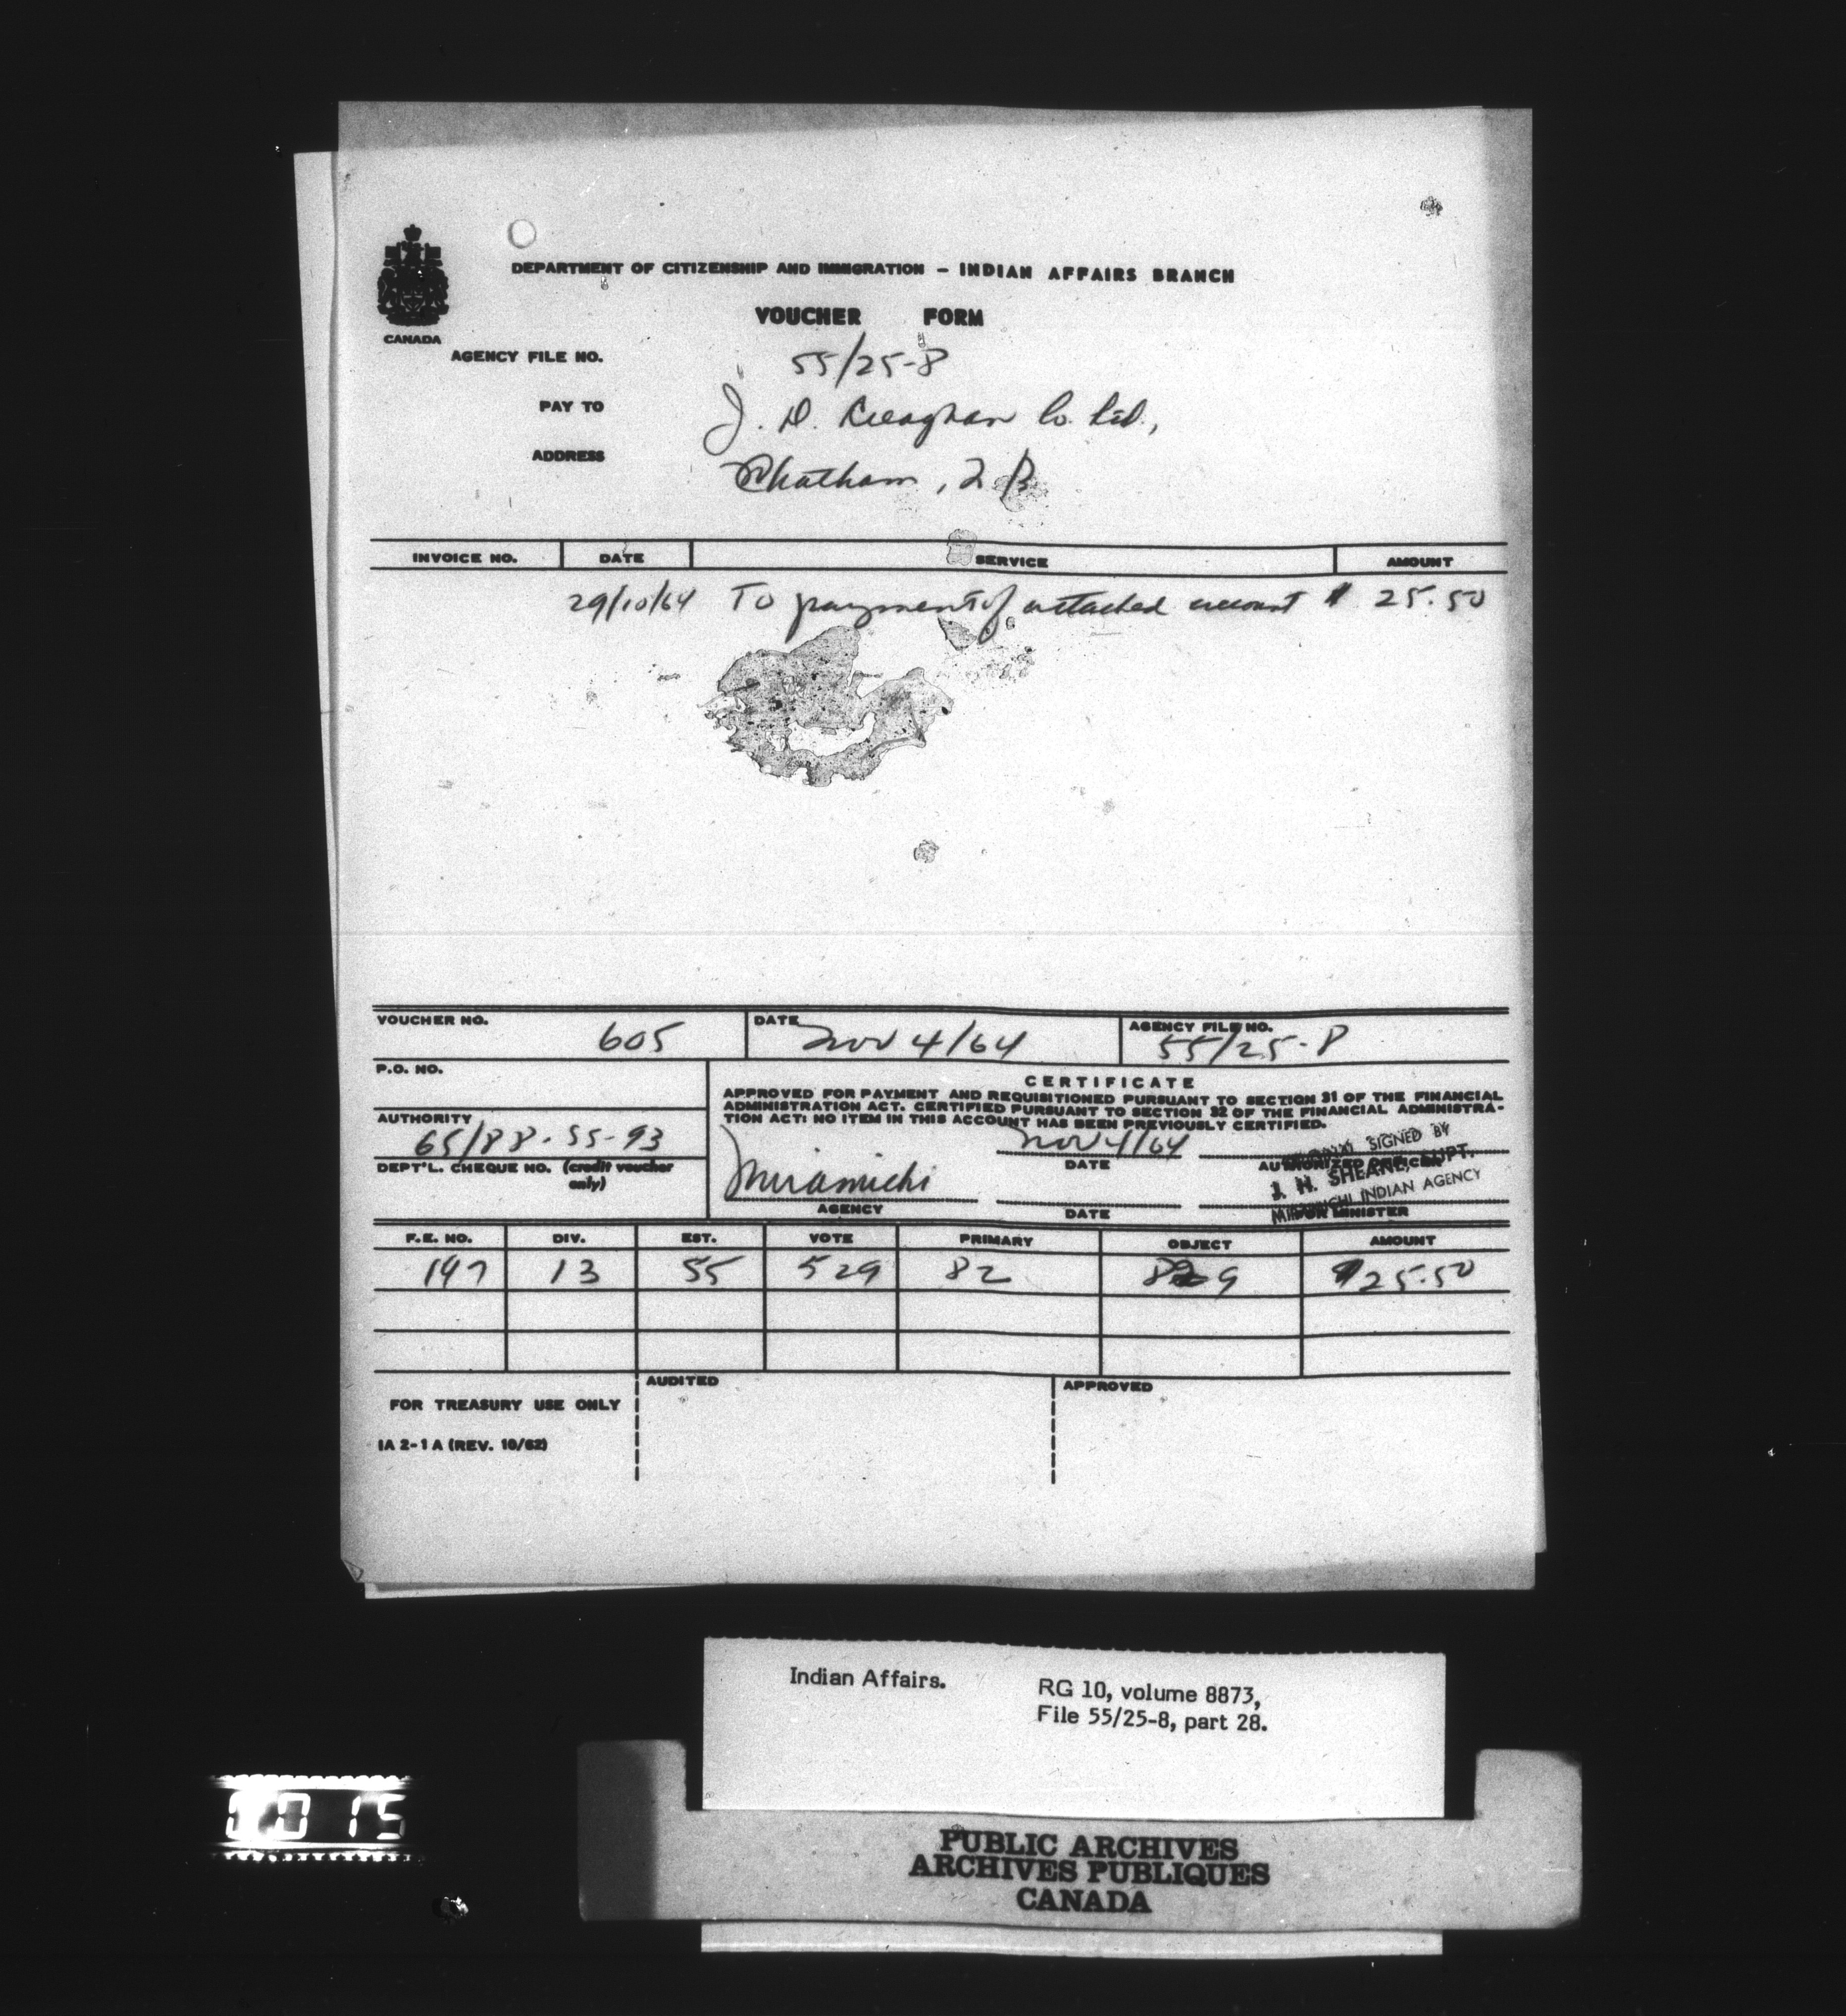 DEPARTMENT OF CITIZENSHIP AND IMMIGRATION - INDIAN AFFAIRS BRANCH
VOUCHER FORM
CANADA
AGENCY FILE NO. 55/25-8
PAY TO J. D. Creaghan Co. Ltd.,
ADDRESS Chatham, N B
INVOICE NO. DATE SERVICE AMOUNT
29/10/64 To payment of attached account $ 25.50
VOUCHER NO. 605 DATE Nov 4/64 AGENCY FILE NO. 55/25-8
P.O. NO.
CERTIFICATE
APPROVED FOR PAYMENT AND REQUISITIONED PURSUANT TO SECTION 31 OF THE FINANCIAL
ADMINISTRATION ACT. CERTIFIED PURSUANT TO SECTION 32 OF THE FINANCIAL ADMINISTRA-
TION ACT: NO ITEM IN THIS ACCOUNT HAS BEEN PREVIOUSLY CERTIFIED.
AUTHORITY
65/88-55-93
DEPT'L. CHEQUE NO. (credit voucher
only)
Nov 4/64
DATE
AUTHORIZED OFFICER
SIGNED BY
J. H. SHEANE, SUPT.
MIRAMICHI INDIAN AGENCY
Miramichi
AGENCY
DATE
MINISTER
F.E. NO. DIV. EST. VOTE PRIMARY OBJECT AMOUNT
197 13 55 529 82 9 $25.50
FOR TREASURY USE ONLY
AUDITED
APPROVED
IA 2-1 A (REV. 10/62)
Indian Affairs.
RG 10, volume 8873,
File 55/25-8, part 28.
PUBLIC ARCHIVES
ARCHIVES PUBLIQUES
CANADA
015